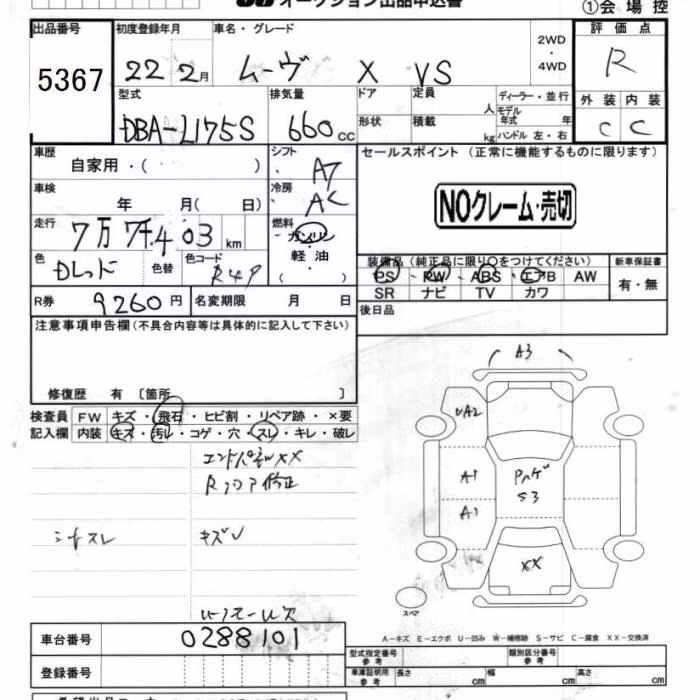 オークション出品申込書
①会場控
出品番号 5367
初度登録年月 22 2月
車名・グレード ムーヴ X VS
2WD ・ 4WD
評価点 R
型式 DBA-L175S
排気量 660 CC
ドア 形状
定員 人 積載 kg
ディーラー・並行
モデル年式 年
ハンドル 左・右
外装 C 内装 C
車歴 自家用・( )
シフト AT
セールスポイント (正常に機能するものに限ります)
NOクレーム・売切
車検 年 月( 日)
冷房 AC
走行 7万7千403 km
燃料 ガソリン・軽油 ( )
色 Dレッド 色替 色コード R49
装備品(純正品に限り○をつけてください)
PS PW ABS エアB AW
SR ナビ TV カワ
新車保証書 有・無
R券 9260円
名変期限 月 日
後日品
注意事項申告欄(不具合内容等は具体的に記入して下さい)
修復歴 有〔箇所 〕
検査員記入欄
FW キズ・飛石・ヒビ割・リペア跡・×要
内装 キズ・汚レ・コゲ・穴・スレ・キレ・破レ
エンドパネルXX
Rフロア修正
シートスレ
キズU
A3
UA2
A1
A1
S3
XX
スペア
A-キズ E-エクボ U-凹み W-補修跡 S-サビ C-腐食 XX-交換済
車台番号 0288101
登録番号
型式指定番号 参考
類別区分番号 参考
車庫証明用 参考 長さ cm 幅 cm 高さ cm